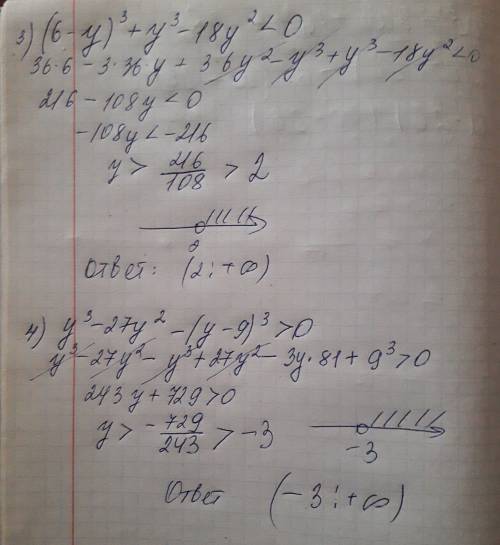 3) (6-y)³ + y³ - 18y² < 0
36·6 - 3·36·y + 3·6y² - y³ + y³ - 18y² < 0
216 - 108y < 0
-108y < -216
y > 216/108 > 2
2
Ответ: (2; +∞)
4) y³ - 27y² - (y-9)³ > 0
y³ - 27y² - y³ + 27y² - 3y·81 + 9³ > 0
243y + 729 > 0
y > -729/243 > -3
-3
Ответ (-3; +∞)